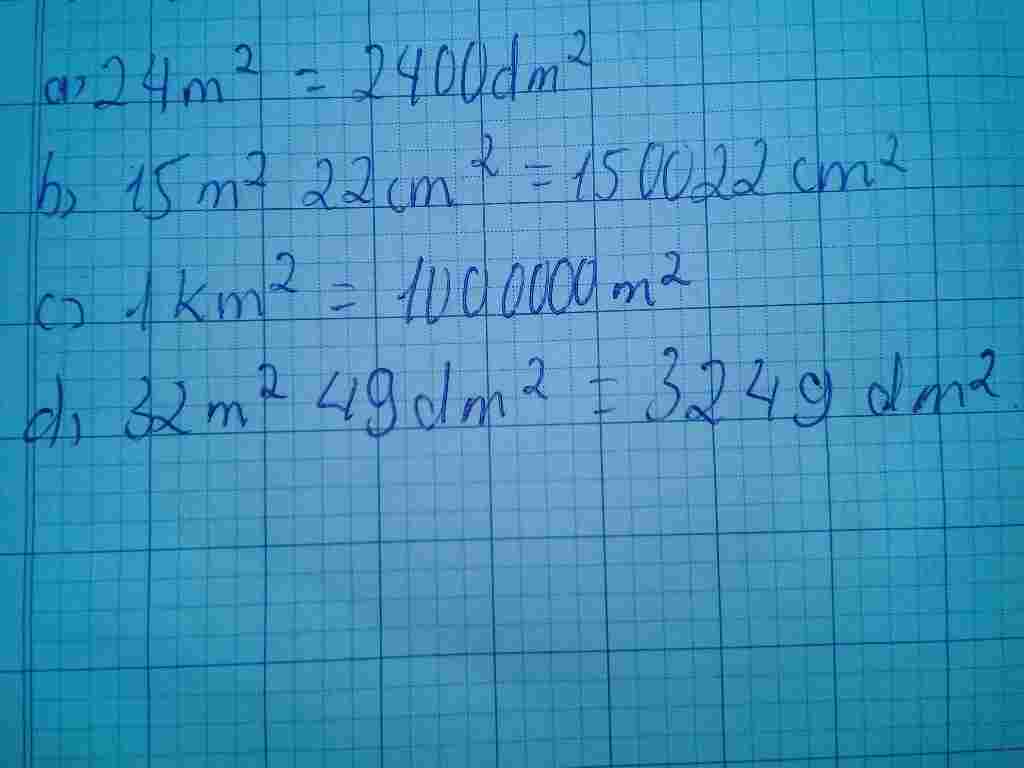 a, 24m² = 2400dm²
b, 15m² 22cm² = 150022cm²
c, 1km² = 1000000m²
d, 32m² 49dm² = 3249dm².